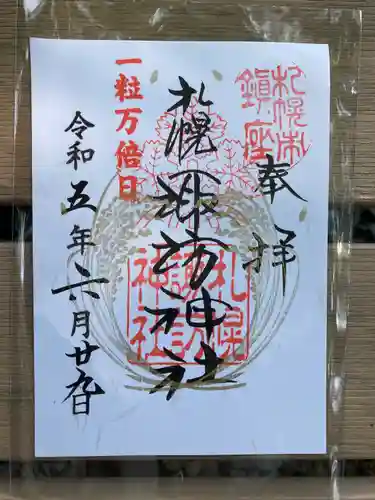 札幌市
鎮座
奉拝
札幌諏訪神社
札幌
諏訪
神社
一粒万倍日
令和五年六月廿九日